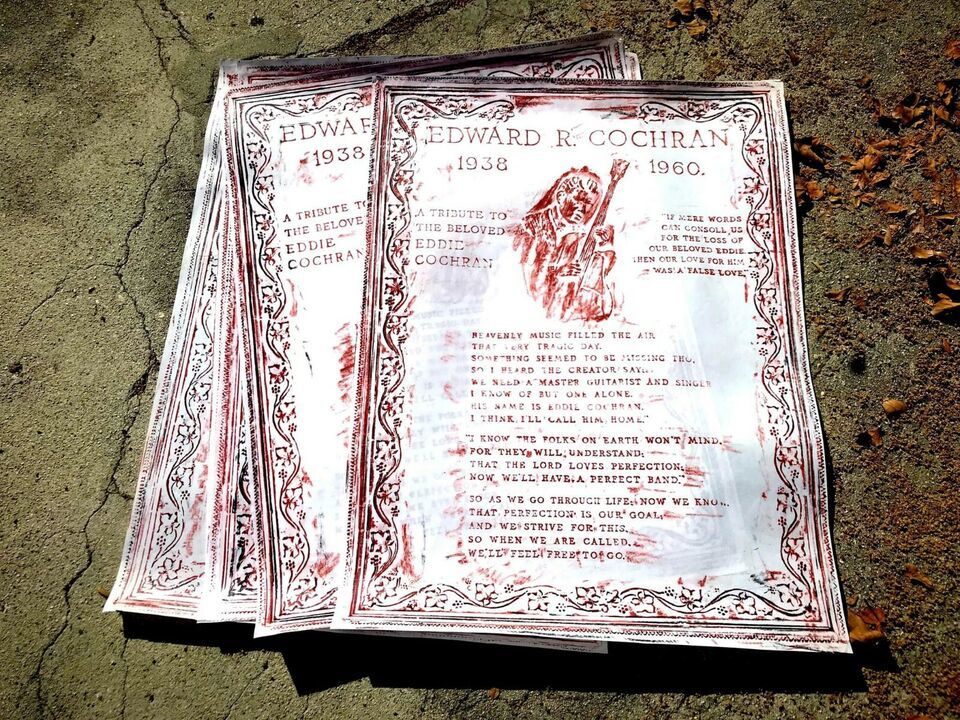 EDWARD R. COCHRAN
1938
1960.
A TRIBUTE TO
THE BELOVED
EDDIE
COCHRAN
"IF MERE WORDS
CAN CONSOLL US
FOR THE LOSS OF
OUR BELOVED EDDIE
THEN OUR LOVE FOR HIM
WAS A FALSE LOVE"
HEAVENLY MUSIC FILLED THE AIR
THAT VERY TRAGIC DAY.
SOMETHING SEEMED TO BE MISSING THO,
SO I HEARD THE CREATOR SAY..
WE NEED A MASTER GUITARIST AND SINGER
I KNOW OF BUT ONE ALONE.
HIS NAME IS EDDIE COCHRAN.
I THINK I'LL CALL HIM HOME."
"I KNOW THE FOLKS ON EARTH WON'T MIND,
FOR THEY WILL UNDERSTAND;
THAT THE LORD LOVES PERFECTION;
NOW WE'LL HAVE A PERFECT BAND."
SO AS WE GO THROUGH LIFE; NOW WE KNOW..
THAT PERFECTION IS OUR GOAL;
AND WE STRIVE FOR THIS.
SO WHEN WE ARE CALLED..
WE'LL FEEL FREE TO GO.
EDWAR
1938
A TRIBUTE TO
THE BELOVED
EDDIE
COCHRAN